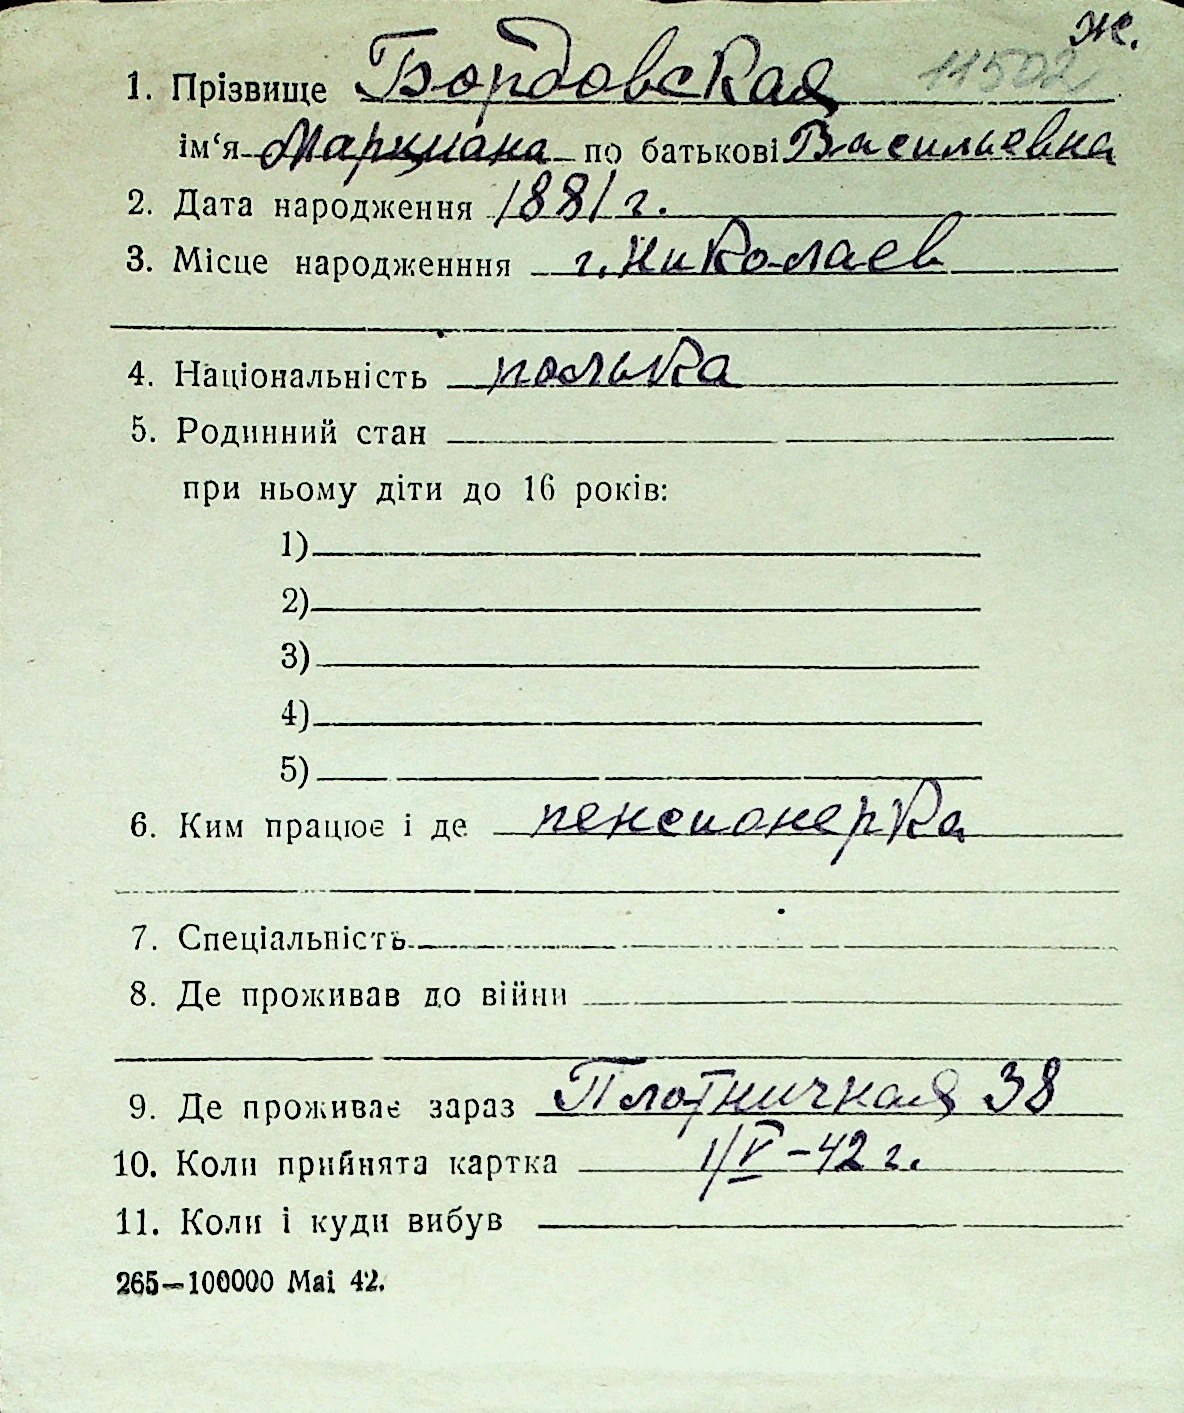 ж.
11502
1. Прізвище Бордовская
ім‘я Марциана по батькові Васильевна
2. Дата народження 1881 г.
3. Місце народженння г. Николаев
4. Національність полька
5. Родинний стан
при ньому діти до 16 років:
1)
2)
3)
4)
5)
6. Ким працює і де пенсионерка
7. Спеціальність
8. Де проживав до війни
9. Де проживає зараз Плотничная 38
10. Коли прийнята картка 1/V–42 г.
11. Коли і куди вибув
265—100000 Mai 42.